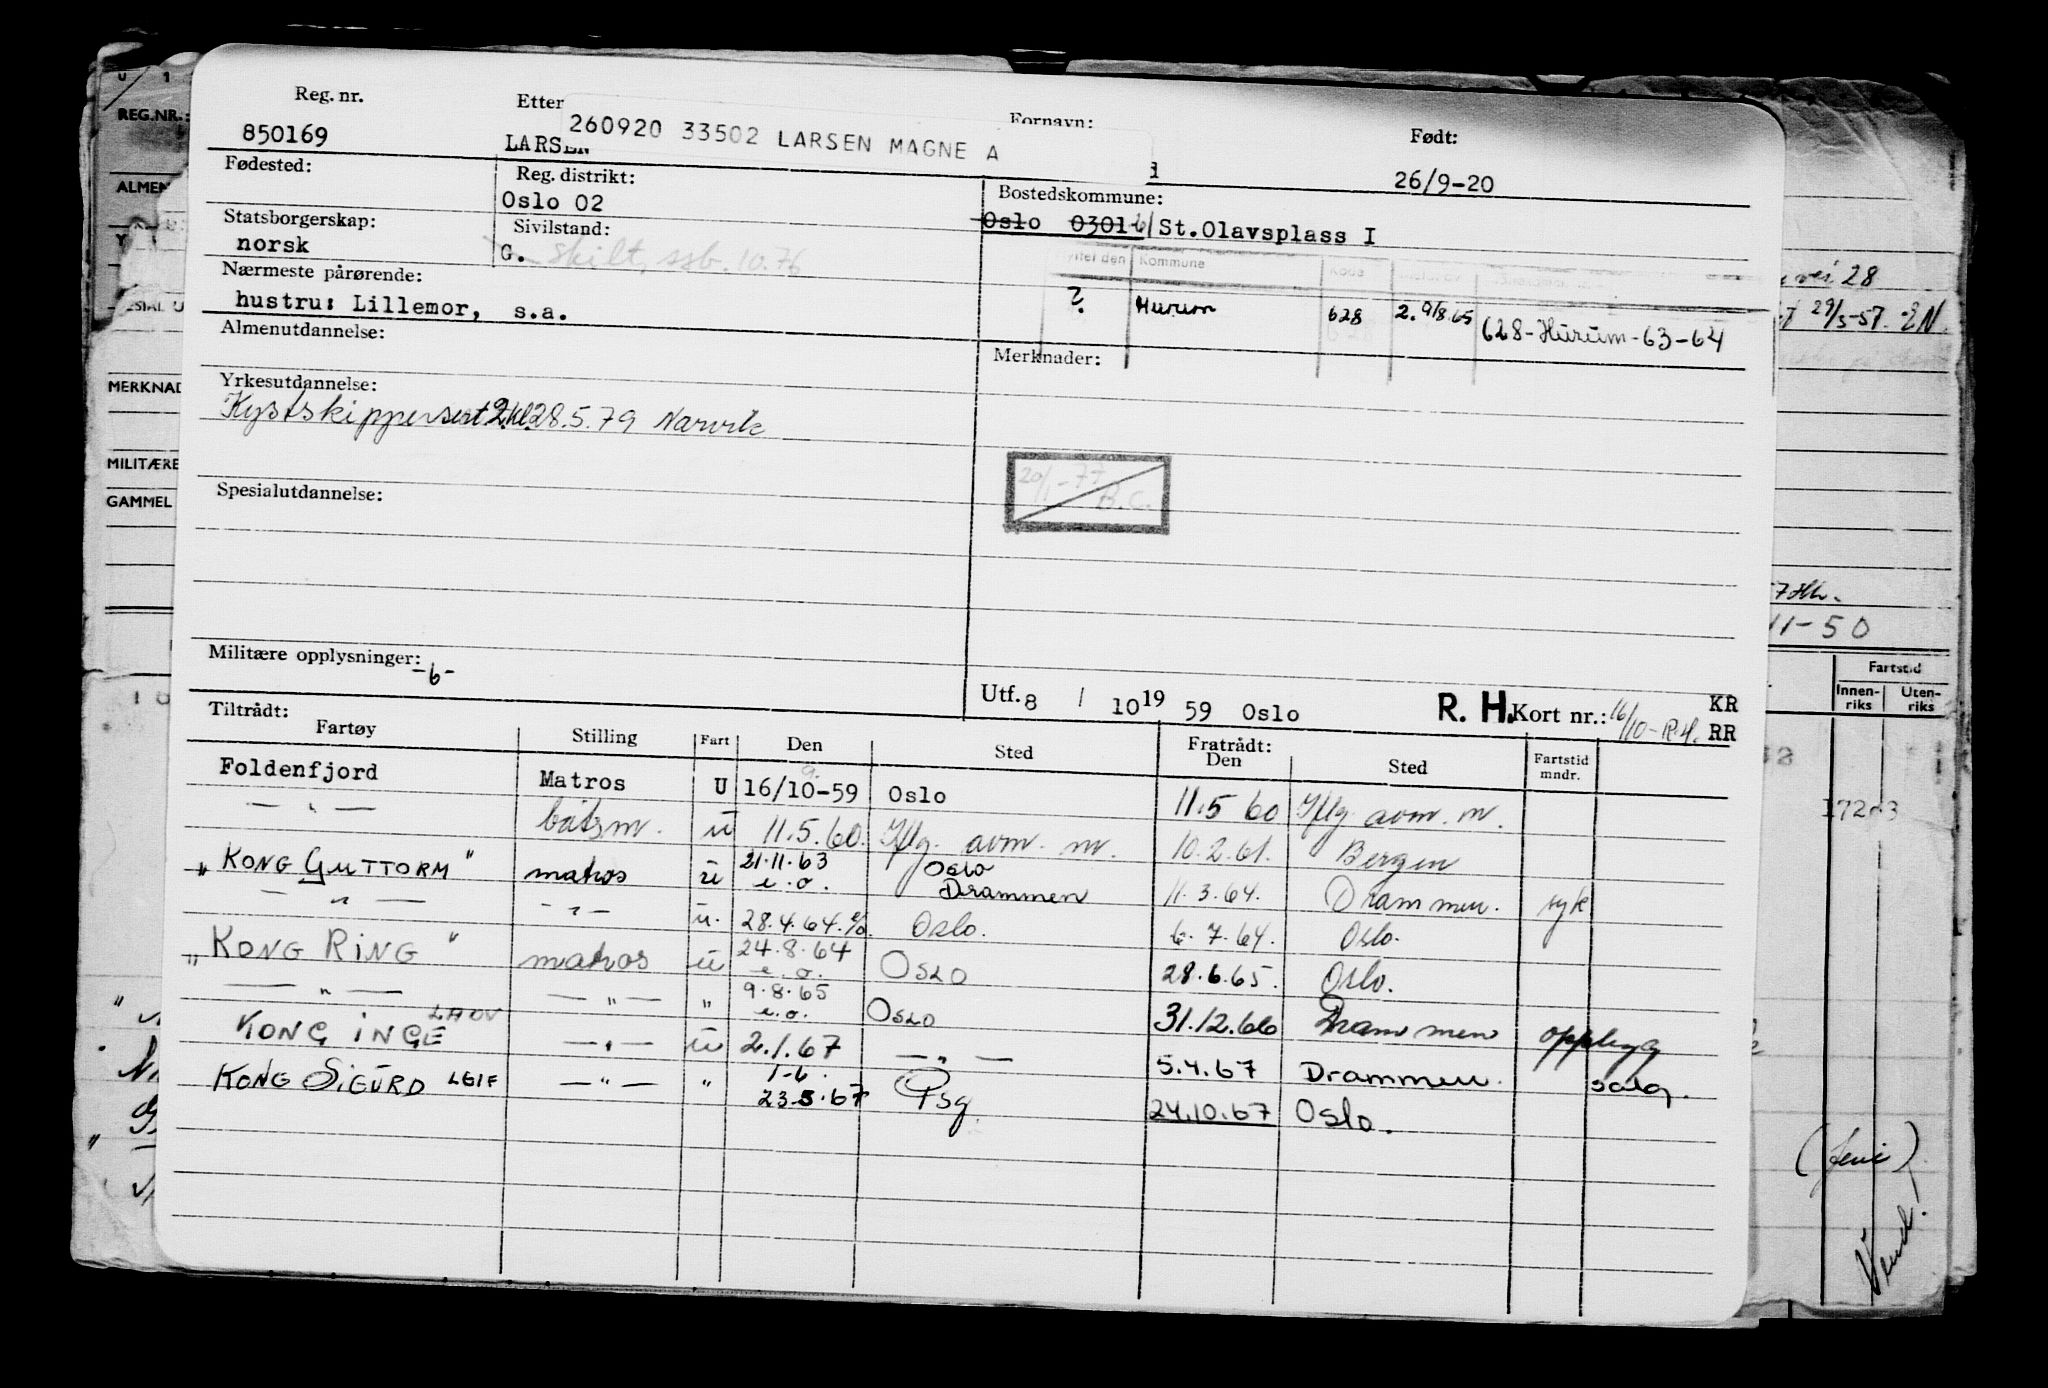 Reg. nr. Etter Fornavn: Født:
850169 LARSEN 260920 33502 LARSEN MAGNE A 26/9-20
Fødested: Reg. distrikt: Bostedskommune:
Oslo 02 Oslo 0301 St.Olavsplass I
Statsborgerskap: Sivilstand:
norsk G. skilt, ssb. 10.76
Nærmeste pårørende: Kommune Kode
hustru: Lillemor, s.a. ? Hurum 628 2. 9/8.65 628-Hurum-63-64
Almenutdannelse: Merknader:
Yrkesutdannelse:
Kystskippersert 2kl 28.5.79 Narvik
20/1-77 B.C.
Spesialutdannelse:
Militære opplysninger: -6-
Utf. 8 / 10 19 59 Oslo R. H. Kort nr.: 16/10-R.H. KR RR
Tiltrådt: Fratrådt:
Fartøy Stilling Fart Den Sted Den Sted Fartstid mndr.
Foldenfjord Matros U 16/10-59 Oslo 11.5 60 Iflg. avm. m.
— " — båtsm. u 11.5.60. Iflg. avm. m. 10.2.61. Bergen
"KONG GUTTORM" matros u 21.11.63 e.o. Oslo Drammen 11.3.64. Drammen. syk
— " — — " — u. 28.4.64. Oslo. 6.7.64. Oslo.
"KONG RING" matros u 24.8.64 e.o. OSLO 28.6.65. Oslo.
— " — — " — " 9.8.65 e.o. OSLO 31.12.66 Drammen opplegg
KONG INGE — " — u 2.1.67 — " — 5.4.67 Drammen. salg.
KONG SIGURD LEIF — " — " 23.5.67 Psg 24.10.67 Oslo.
REG.NR.:
MILITÆRE
GAMMEL
vei 28
29/5-57. EN
11-50
Fartstid
Innen-riks Uten-riks
Vend!